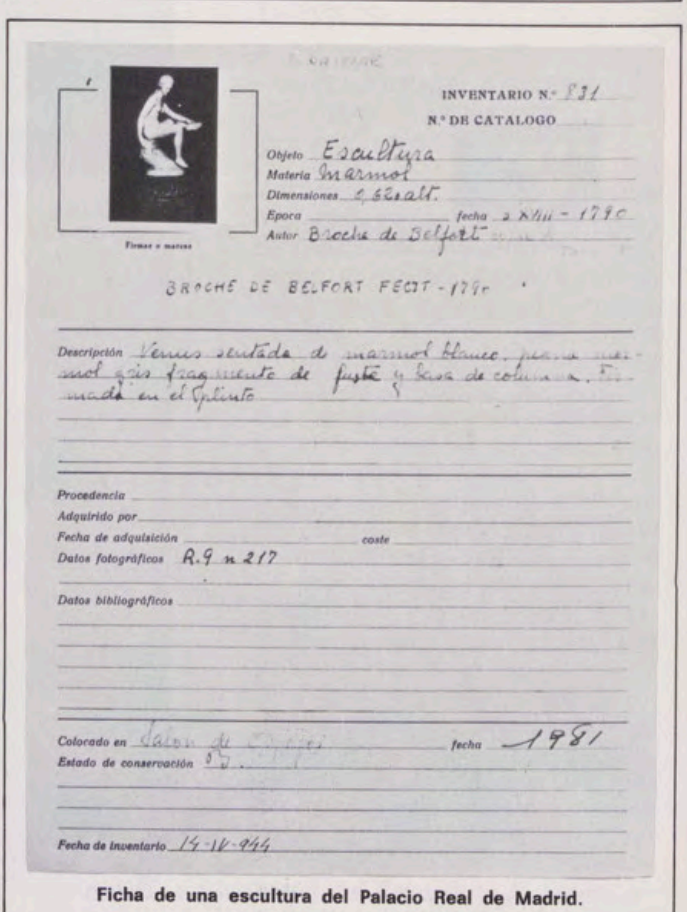 INVENTARIO N.º 831
N.º DE CATALOGO
Objeto Escultura
Materia marmol
Dimensiones 0,62 alt.
Epoca fecha s XVIII - 1790
Autor Broche de Belfort
Firmas o marcas
BROCHE DE BELFORT FECIT - 1790
Descripción Venus sentada de marmol blanco, peana mar-
mol gris fragmento de fuste y basa de columna. Fir-
mada en el plinto
Procedencia
Adquirido por
Fecha de adquisición coste
Datos fotográficos R.9 n 217
Datos bibliográficos
Colocado en Salon de fecha 1981
Estado de conservación
Fecha de inventario 14-IV-944
Ficha de una escultura del Palacio Real de Madrid.